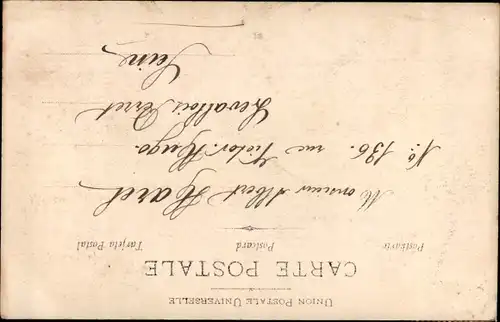 UNION POSTALE UNIVERSELLE
CARTE POSTALE
Postkarte Postcard Tarjeta Postal
Monsieur Albert Harel
No. 136. rue Victor Hugo.
Levallois Perret
Seine